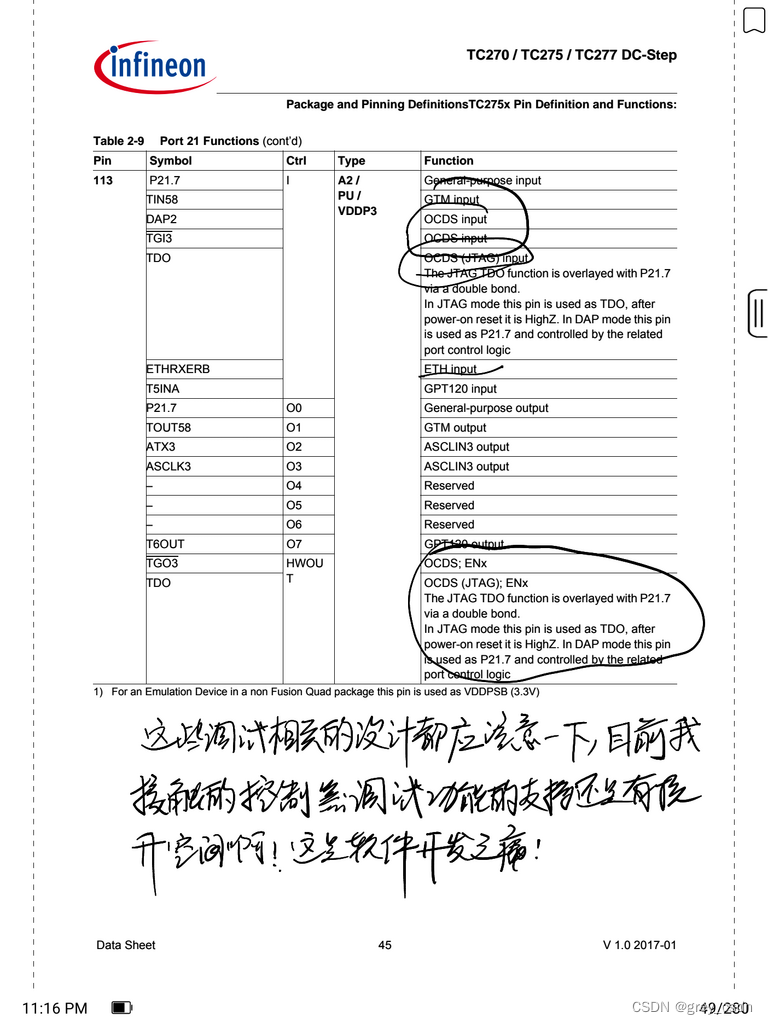 infineon
TC270 / TC275 / TC277 DC-Step
Package and Pinning DefinitionsTC275x Pin Definition and Functions:
Table 2-9 Port 21 Functions (cont'd)
Pin Symbol Ctrl Type Function
113 P21.7 I A2 / PU / VDDP3 General-purpose input
TIN58 GTM input
DAP2 OCDS input
TGI3 OCDS input
TDO OCDS (JTAG) input
The JTAG TDO function is overlayed with P21.7
via a double bond.
In JTAG mode this pin is used as TDO, after
power-on reset it is HighZ. In DAP mode this pin
is used as P21.7 and controlled by the related
port control logic
ETHRXERB ETH input
T5INA GPT120 input
P21.7 O0 General-purpose output
TOUT58 O1 GTM output
ATX3 O2 ASCLIN3 output
ASCLK3 O3 ASCLIN3 output
– O4 Reserved
– O5 Reserved
– O6 Reserved
T6OUT O7 GPT120 output
TGO3 HWOUT OCDS; ENx
TDO OCDS (JTAG); ENx
The JTAG TDO function is overlayed with P21.7
via a double bond.
In JTAG mode this pin is used as TDO, after
power-on reset it is HighZ. In DAP mode this pin
is used as P21.7 and controlled by the related
port control logic
1) For an Emulation Device in a non Fusion Quad package this pin is used as VDDPSB (3.3V)
这些调试相关的设计都应注意一下,目前我
接触的控制器调试功能的支持还是有提
升空间啊!这是软件开发之痛!
Data Sheet 45 V 1.0 2017-01
11:16 PM
49/280